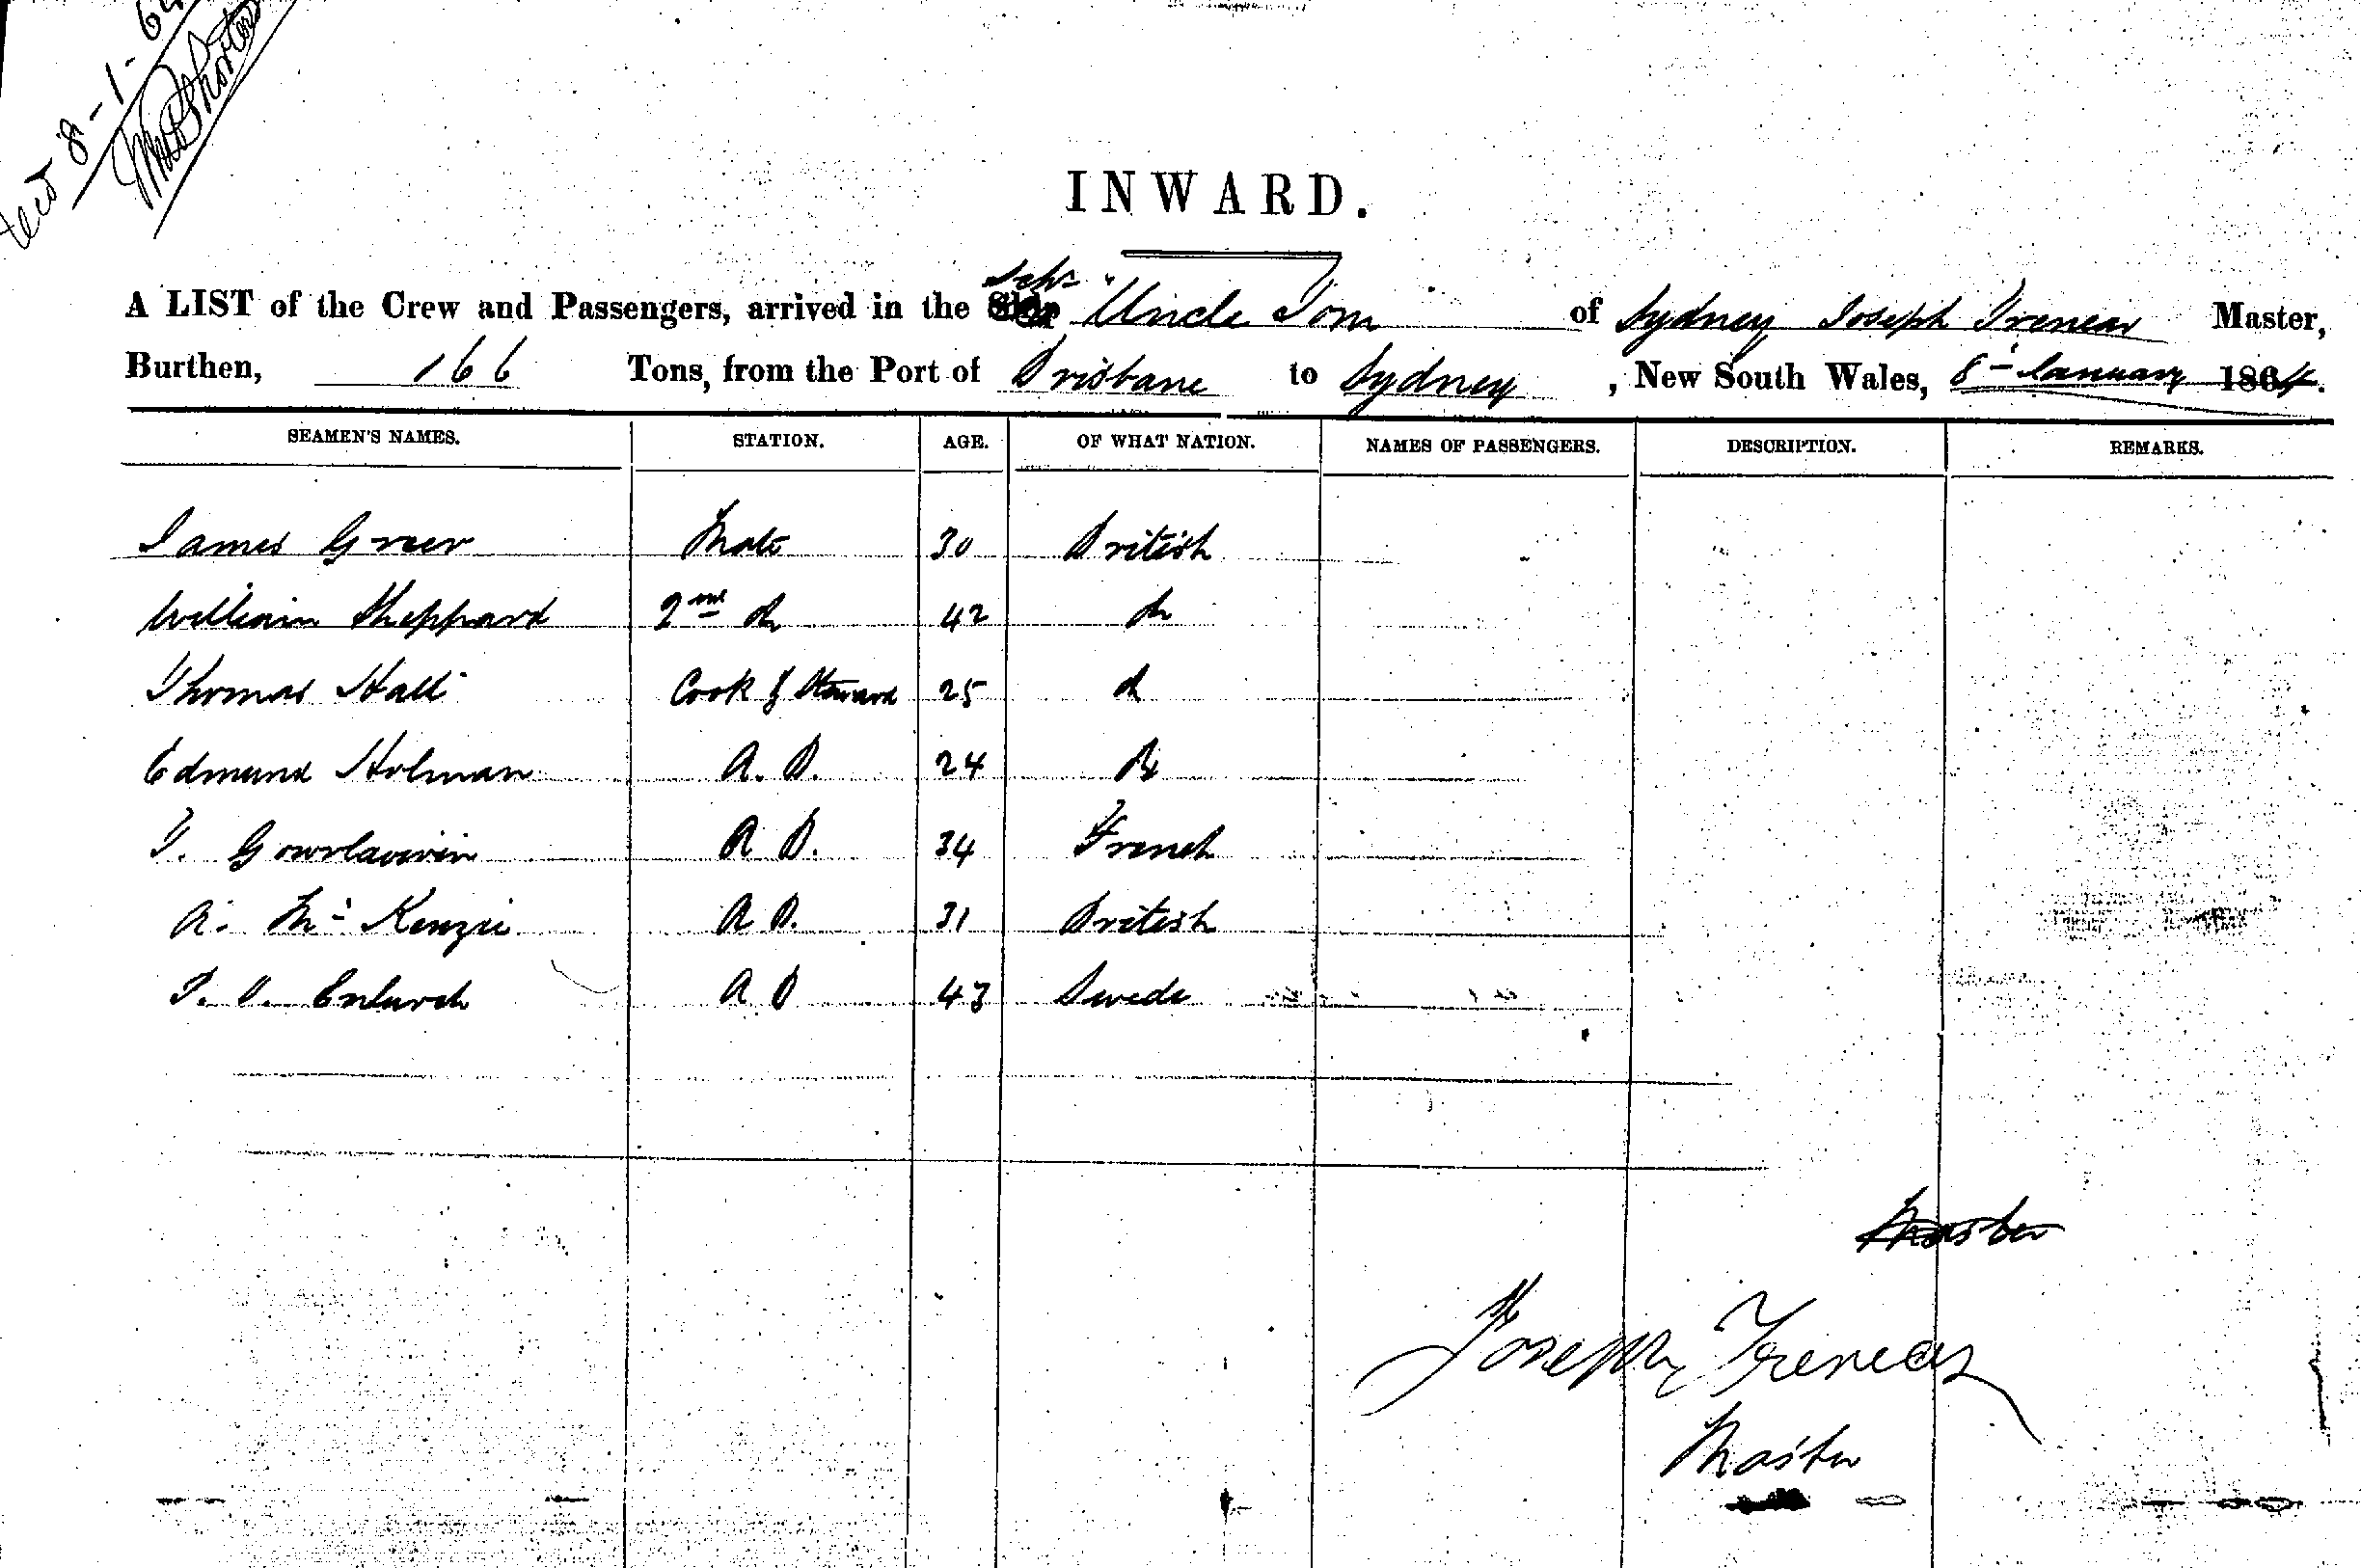 8-1-64
INWARD.
A LIST of the Crew and Passengers, arrived in the Schr "Uncle Tom of Sydney Joseph Trenear Master,
Burthen, 166 Tons, from the Port of Brisbane to Sydney, New South Wales, 8 January 1864.
SEAMEN'S NAMES. STATION. AGE. OF WHAT NATION. NAMES OF PASSENGERS. DESCRIPTION. REMARKS.
James Greer Mate 30 British
William Sheppard 2nd do 42 do
Thomas Hall Cook & Steward 25 do
Edmund Holman A.B. 24 do
A B. 34 French
A. Mc Kenzie A B. 31 British
A B 43 Swede
Master
Joseph Trenear
Master